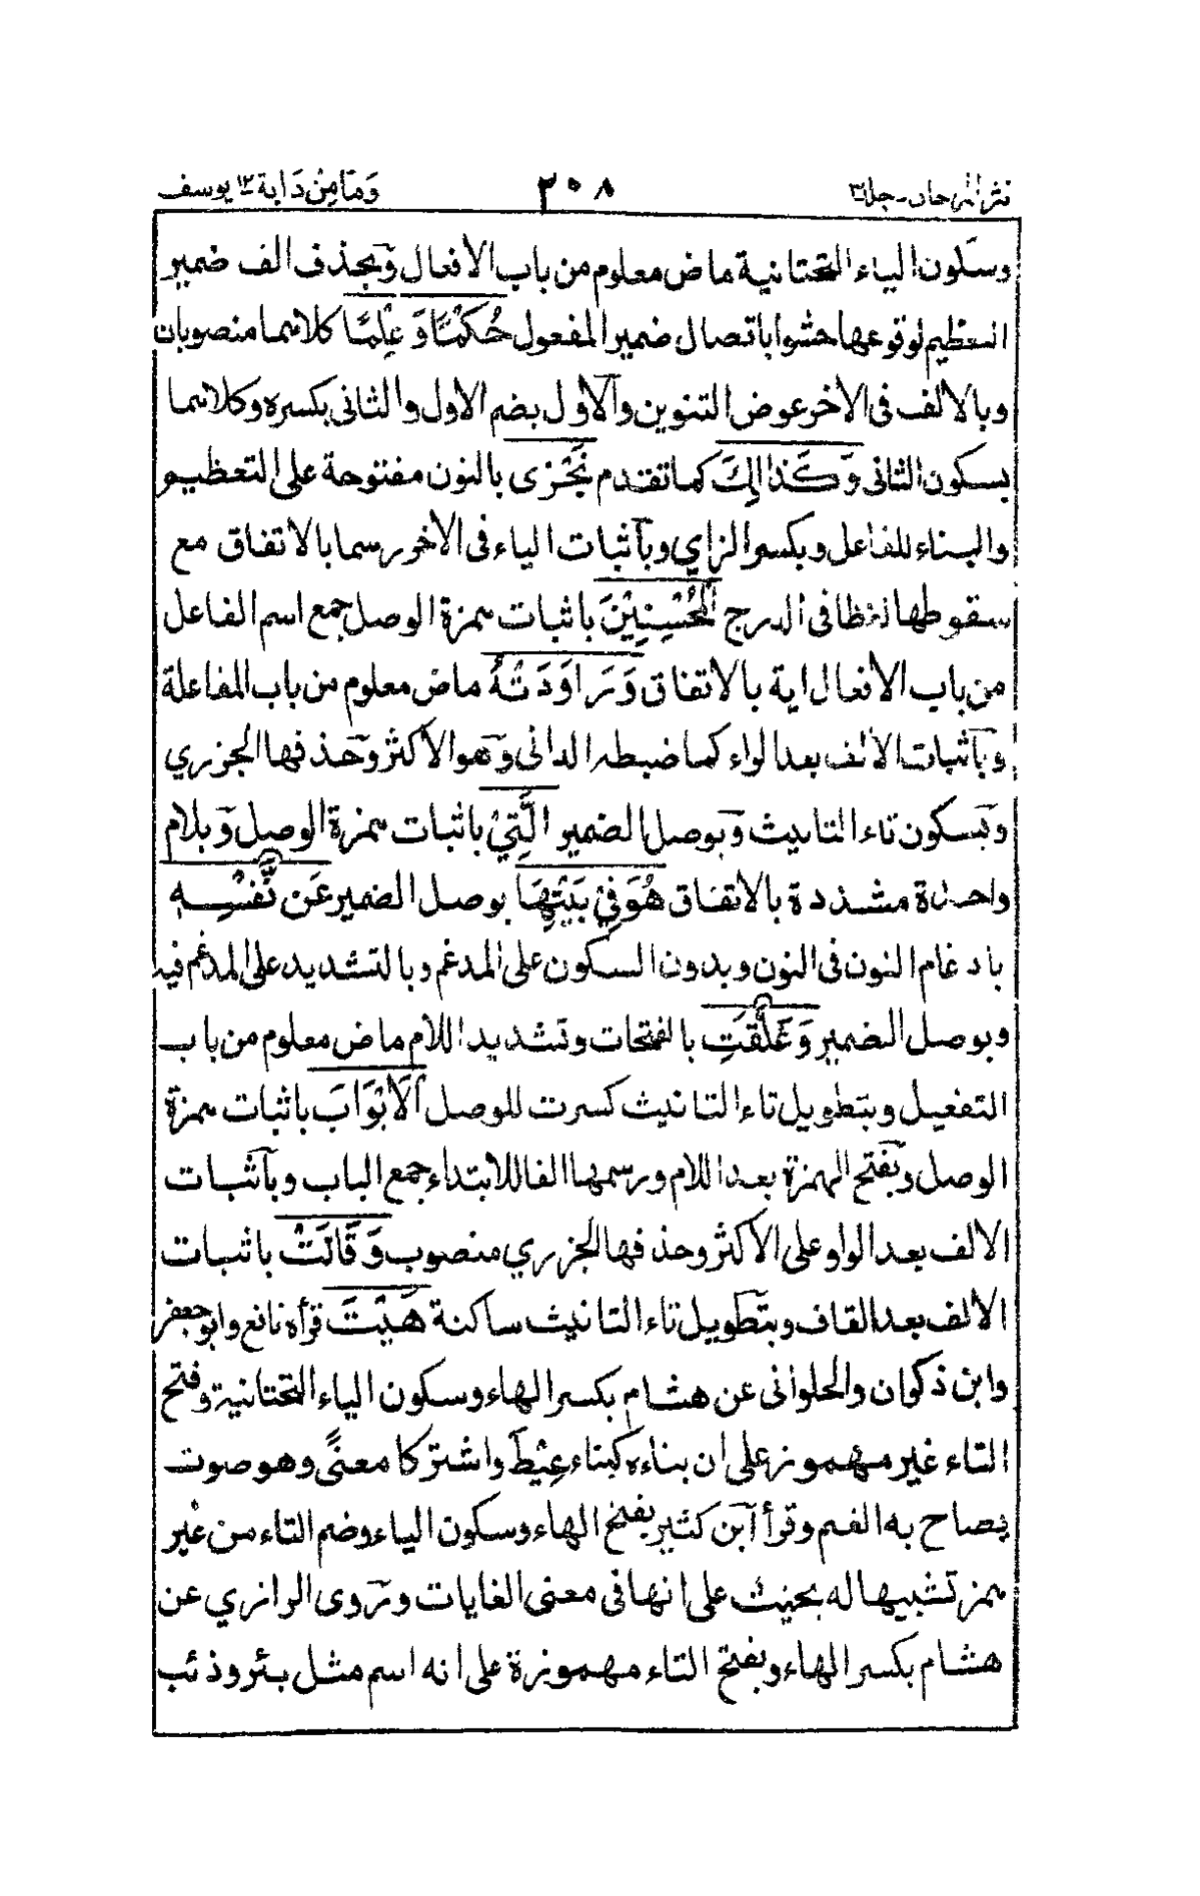 نثر المرجان - جلد ٣ ٣٠٨ وَمَا مِنْ دَابة ١٢ يوسف
وسكون الياء التحتانية ماض معلوم من باب الافعال وبحذف الف ضمير
التعظيم لوقوعها حشوا باتصال ضمير المفعول حُكْمًا وَّ عِلْمًا كلاهما منصوبان
وبالالف فى الاخر عوض التنوين والاول بضم الاول والثانى بكسره وكلاهما
بسكون الثانى وَكَذٰلِكَ كما تقدم نَجْزِى بالنون مفتوحة على التعظيم
والبناء للفاعل وبكسر الزاي وباثبات الياء فى الاخر رسما بالاتفاق مع
سقوطها لفظا فى الدرج الْمُحْسِنِيْنَ باثبات همزة الوصل جمع اسم الفاعل
من باب الافعال اية بالاتفاق وَرَاوَدَتْهُ ماض معلوم من باب المفاعلة
وباثبات الالف بعد الراء كما ضبطه الدانى وهو الاكثر وحذفها الجزري
وبسكون تاء التانيث وبوصل الضمير الَّتِيْ باثبات همزة الوصل وبلام
واحدة مشددة بالاتفاق هُوَ فِيْ بَيْتِهَا بوصل الضمير عَن نَّفْسِهٖ
بادغام النون فى النون وبدون السكون على المدغم وبالتشديد على المدغم فيه
وبوصل الضمير وَغَلَّقَتِ بالفتحات وتشديد اللام ماض معلوم من باب
التفعيل وبتطويل تاء التانيث كسرت للوصل الْاَبْوَابَ باثبات همزة
الوصل وبفتح الهمزة بعد اللام ورسمها الفا للابتداء جمع الباب وباثبات
الالف بعد الواو على الاكثر وحذفها الجزري منصوب وَقَالَتْ باثبات
الالف بعد القاف وبتطويل تاء التانيث ساكنة هَيْتَ قرأه نافع وابو جعفر
وابن ذكوان والحلوانى عن هشام بكسر الهاء وسكون الياء التحتانية وفتح
التاء غير مهموز على ان بناءه كبناء عِيْطَ واشتركا معنًى وهو صوت
يصاح به الغم وقرأ ابن كثير بفتح الهاء وسكون الياء وضم التاء من غير
همز تشبيها له بحيث على انها فى معنى الغايات وروى الرازي عن
هشام بكسر الهاء وبفتح التاء مهموزة على انه اسم مثل بئر وذئب